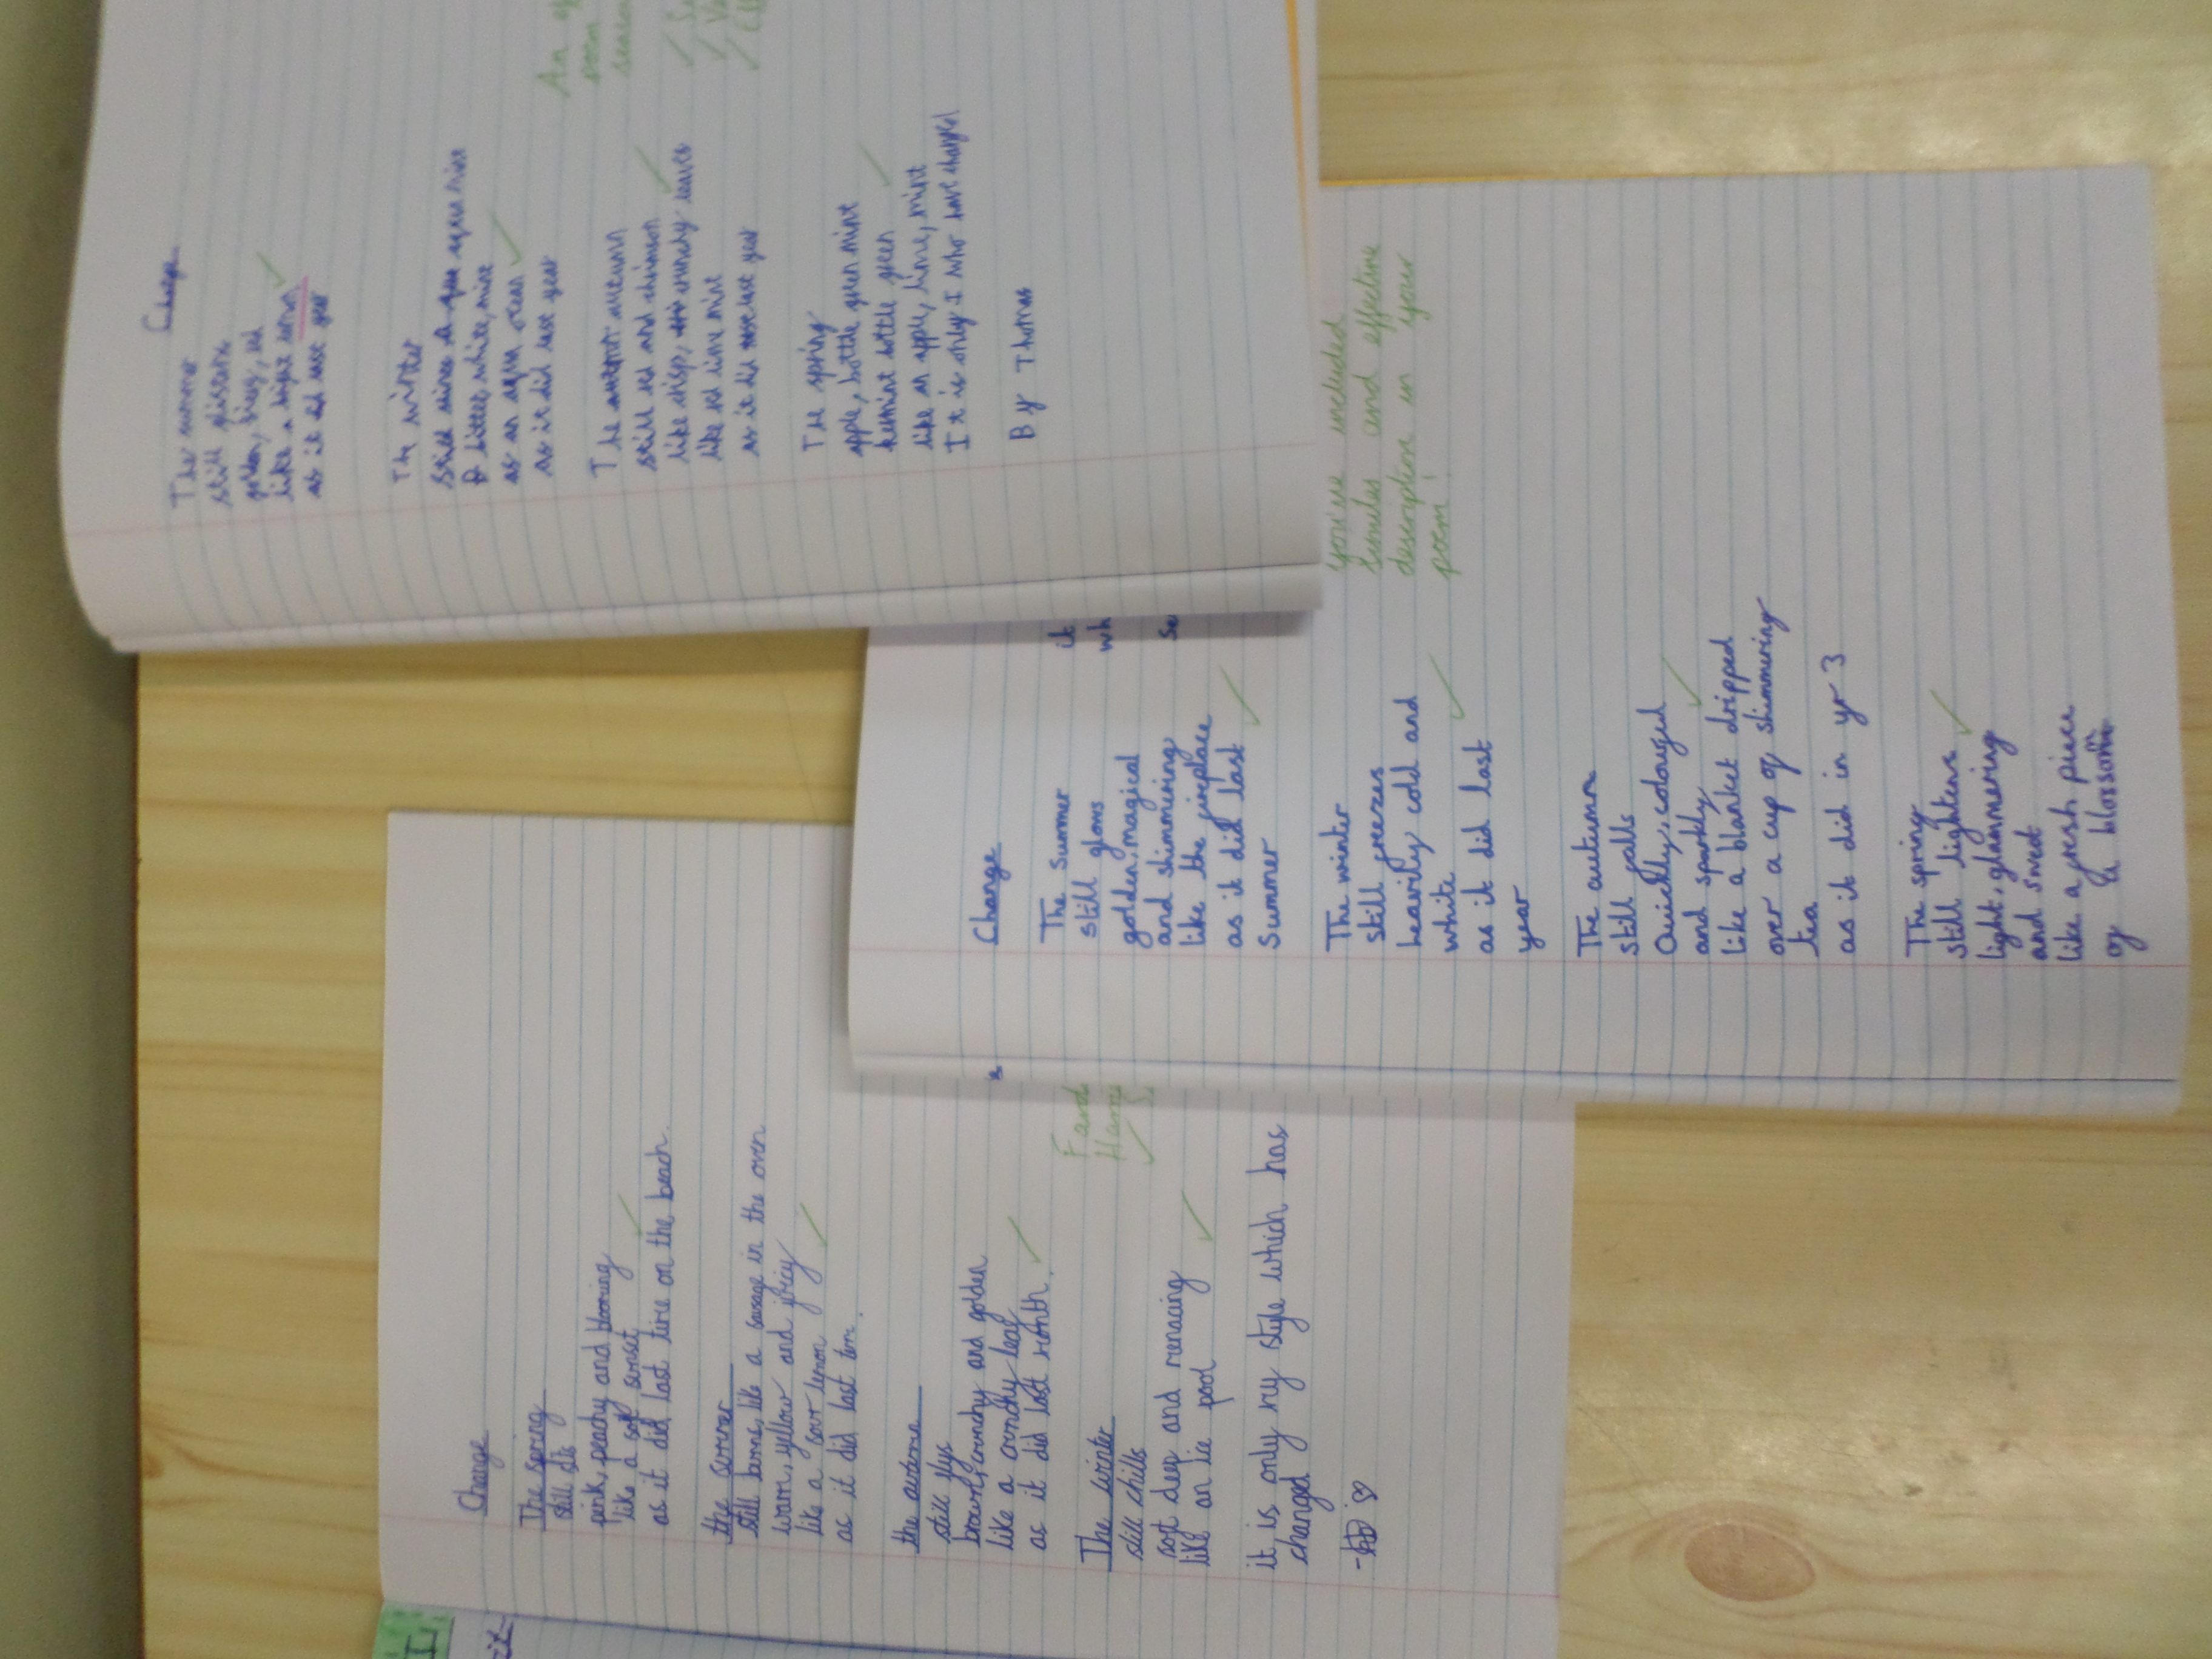 Change
The summer
still glistens
golden, firey, red
like a bright
as it did last year
The winter
still
bitter, white, mist
as an aqua ocean
as it did last year
The autumn
still red and chrimson
like crisp, crunchy leaves
like red lime mint
as it did last year
The spring
apple, bottle green mint
bottle green
like an apple, lime, mint
It is only I who have changed
By Thomas
An
poem
✓ Se
✓ Va
✓
Change
The Summer
still glows
golden, magical
and shimmering
like the fireplace
as it did last
Summer
The winter
still freezes
heavily cold and
white
as it did last
year
The autumn
still falls
Quickly, colourged
and sparkly
like a blanket dripped
over a cup of shimmering
tea
as it did in yr 3
The spring
still lightens
light, glammering
and sweet
like a fresh piece
of a blossom
it
wh
se
you've included
similes and effective
description in your
poem!
Change
The spring
still sits
pink, peachy and blooming
like a soft sunset
as it did last time on the beach.
the summer
still burns, like a sausage in the oven
warm, yellow and juicy
like a sour lemon
as it did last term.
the autumn
still flys
brown, crunchy and golden
like a crunchy leaf
as it did last month.
The winter
still chills
soft deep and menacing
like an ice pool
it is only my style which has
changed